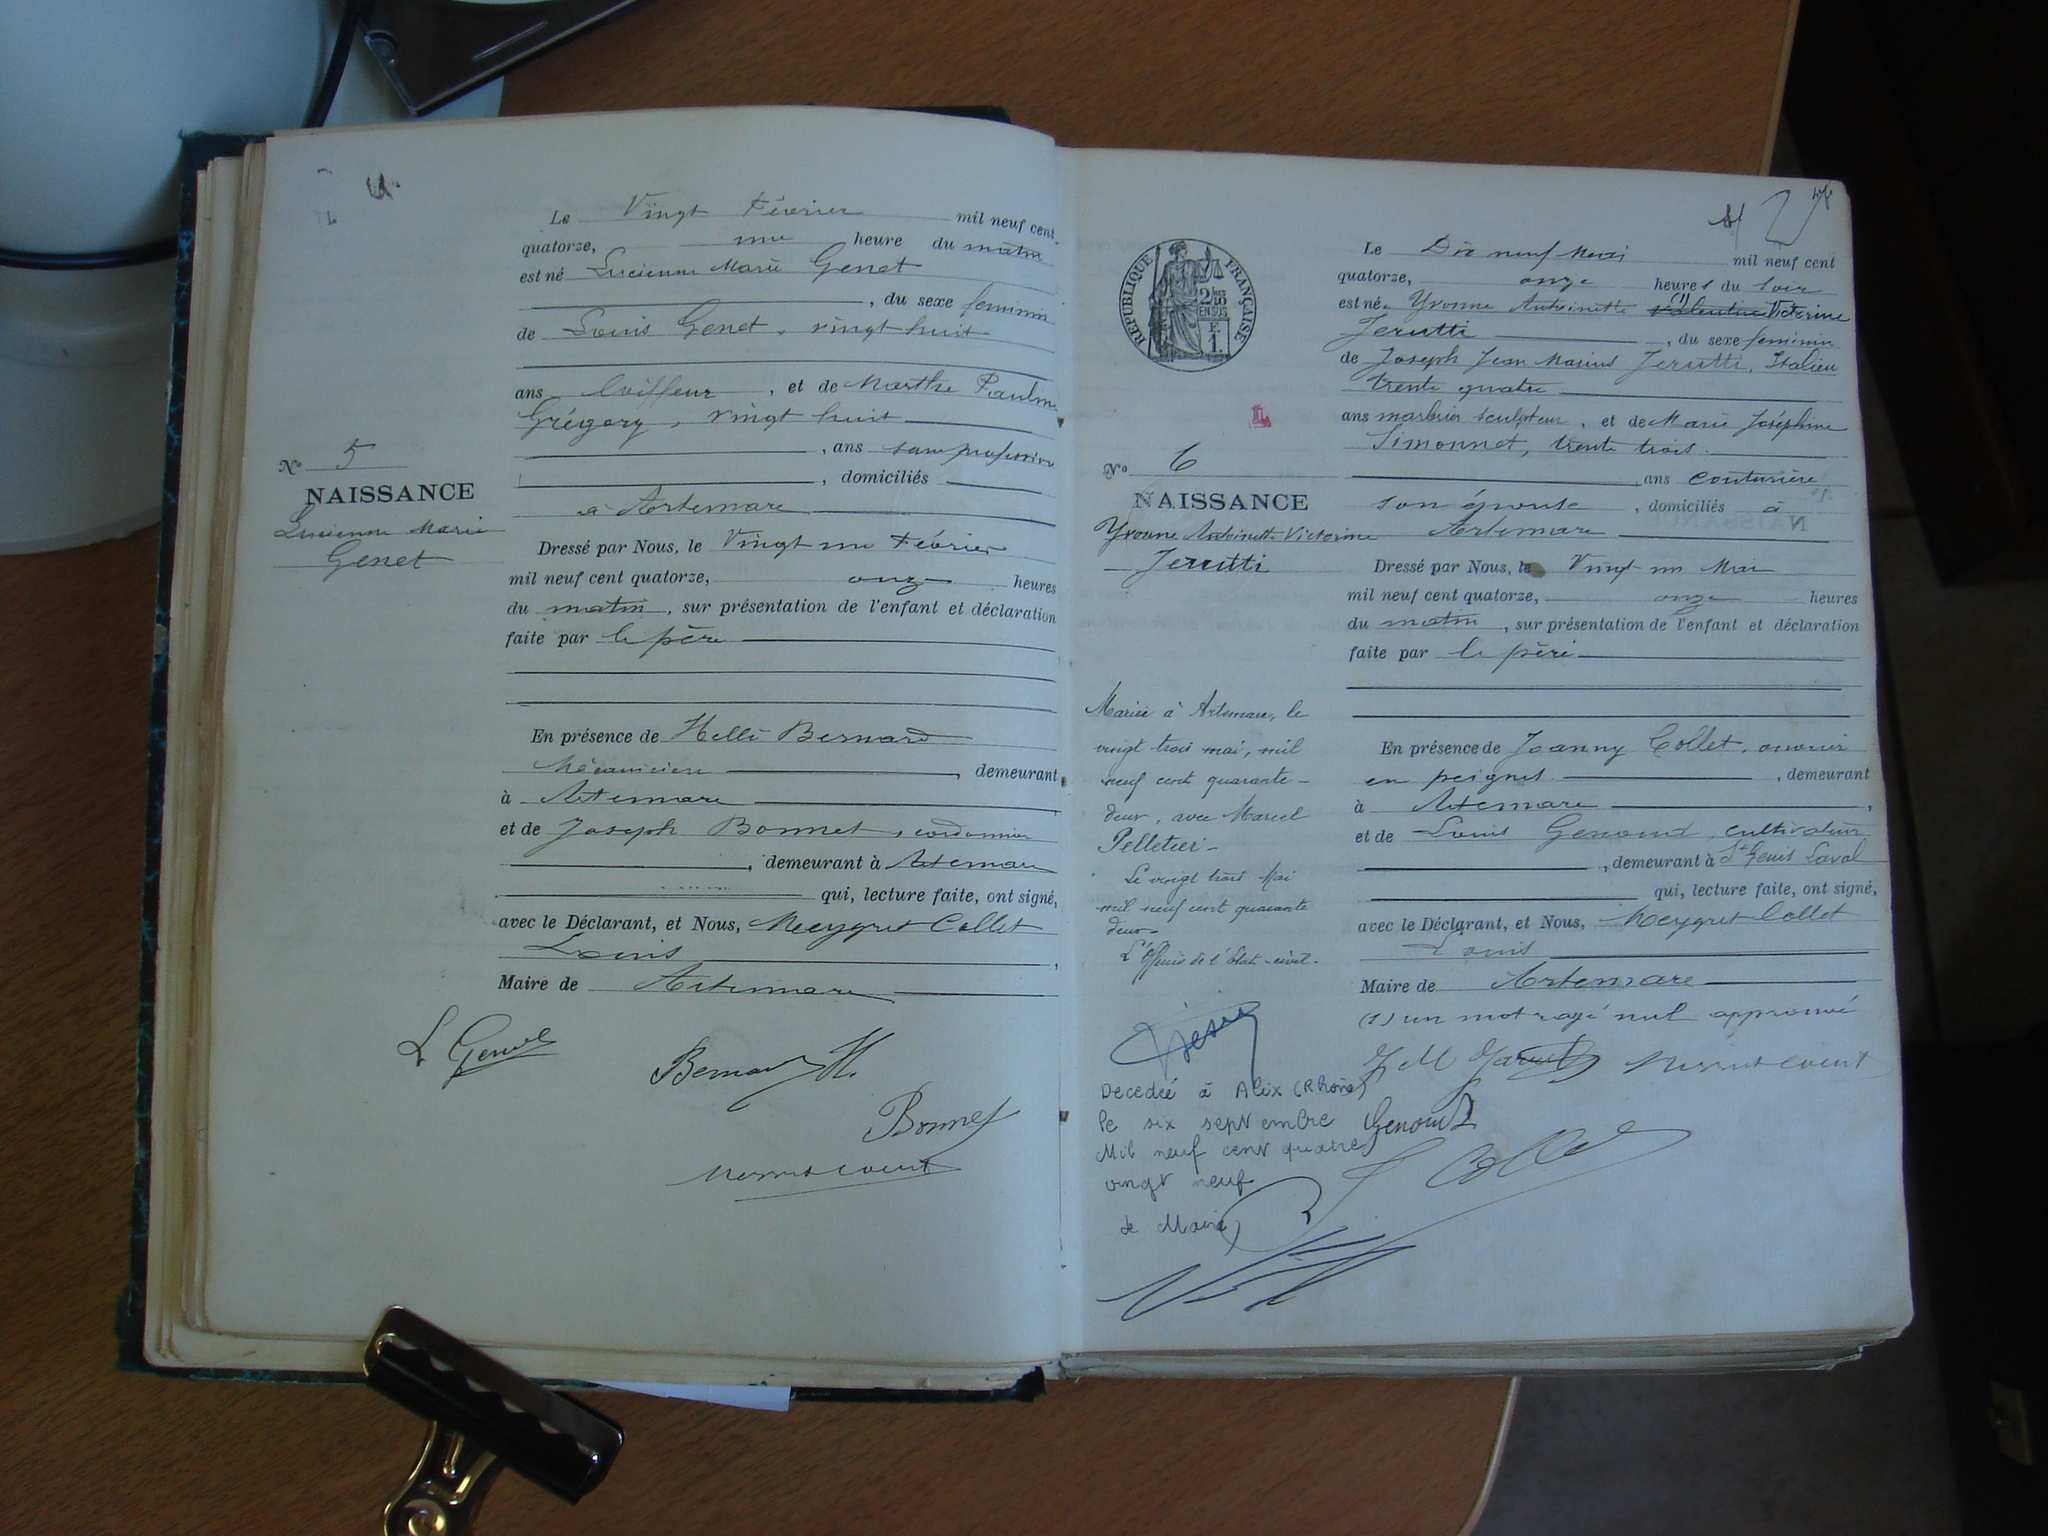 Le Vingt Février mil neuf cent
quatorze, une heure du matin
est né Lucienne Marie Genet
, du sexe feminin
de Louis Genet, vingt huit
ans Coiffeur, et de Marthe Pauline
Grégory, vingt huit
, ans sans profession
, domiciliés
à Artemare
N° 5
NAISSANCE
Lucienne Marie
Genet
Dressé par Nous, le Vingt un Février
mil neuf cent quatorze, onze heures
du matin, sur présentation de l'enfant et déclaration
faite par le père
En présence de Hélli Bernard
Mécanicien, demeurant
à Artemare
et de Joseph Bonnet, cordonnier
, demeurant à Artemare
qui, lecture faite, ont signé,
avec le Déclarant, et Nous, Meygret Collet
Louis,
Maire de Artemare
L Genet
Bernard H.
Bonnet
REPUBLIQUE FRANÇAISE
2/10 EN SUS
F. 1.
Le Dix neuf Mai mil neuf cent
quatorze, onze heures du soir
est née Yvonne Antoinette (1) Valentine Victorine
Jerutti, du sexe feminin
de Joseph Jean Marius Jerutti, Italien
trente quatre
ans marbrier sculpteur, et de Marie Joséphine
Simonnet, trente trois
, ans couturière
son épouse, domiciliés à
Artemare
N° 6
NAISSANCE
Yvonne Antoinette Victorine
Jerutti
Dressé par Nous, le Vingt un Mai
mil neuf cent quatorze, onze heures
du matin, sur présentation de l'enfant et déclaration
faite par le père
En présence de Joanny Collet, ouvrier
en peignes, demeurant
à Artemare,
et de Louis Genoud, cultivateur
, demeurant à St Genis Laval
qui, lecture faite, ont signé,
avec le Déclarant, et Nous, Meygret Collet
Louis
Maire de Artemare
(1) un mot rayé nul approuvé
Mariée à Artemare, le
vingt trois mai, mil
neuf cent quarante-
deux, avec Marcel
Pelletier-
Le vingt trois Mai
mil neuf cent quarante
deux-
L'Officier de l'état-civil-
Decedée à Alix (Rhône)
le six septembre
Mil neuf cent quatre
vingt neuf
Le Maire
Genoud
J Collet